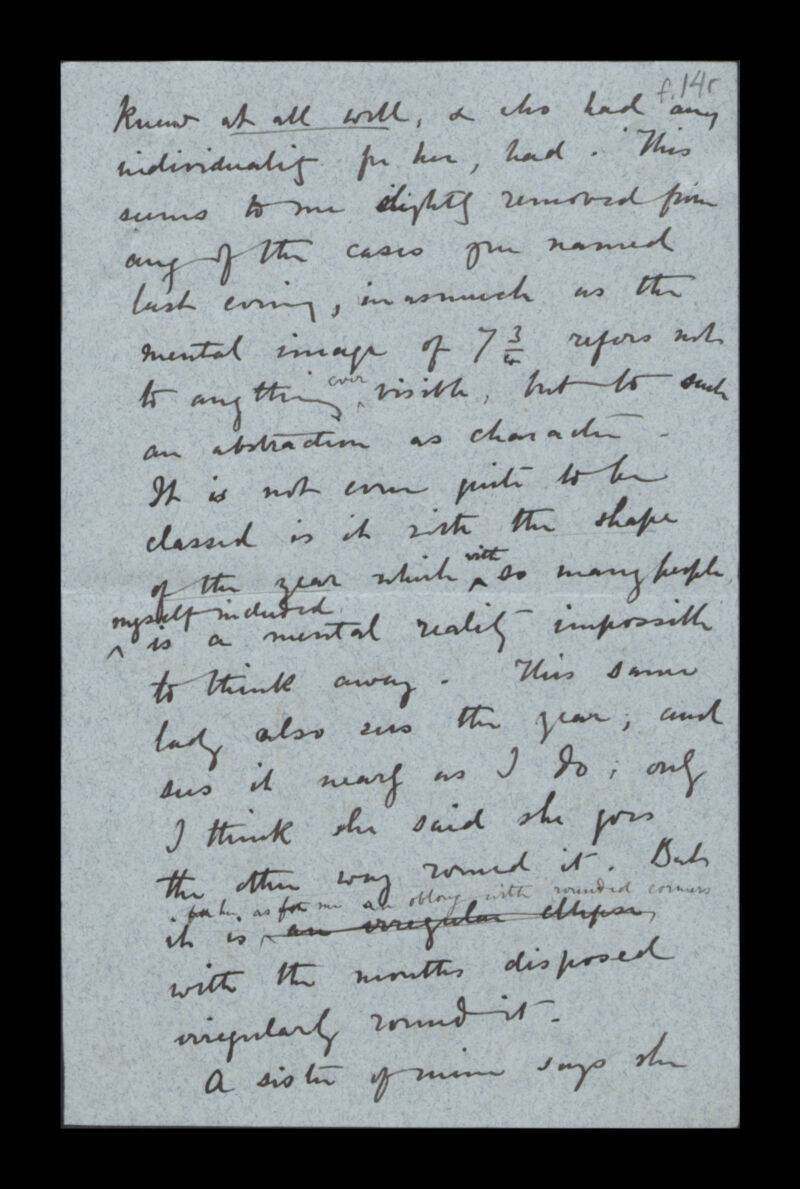 f.14r
knew at all well, & who had any
individuality for her, had. This
seems to me slightly removed from
any of the cases you named
last evening, inasmuch as the
mental image of 7 3/4 refers not
to anything ever visible, but to such
an abstraction as character.
It is not even quite to be
classed is it with the shape
of the year which with so many people,
myself included,
is a mental reality impossible
to think away. This same
lady also sees the year, and
sees it nearly as I do; only
I think she said she goes
the other way round it. But
for her, as for me an oblong with rounded corners
it is an irregular ellipse,
with the months disposed
irregularly round it.
A sister of mine says she